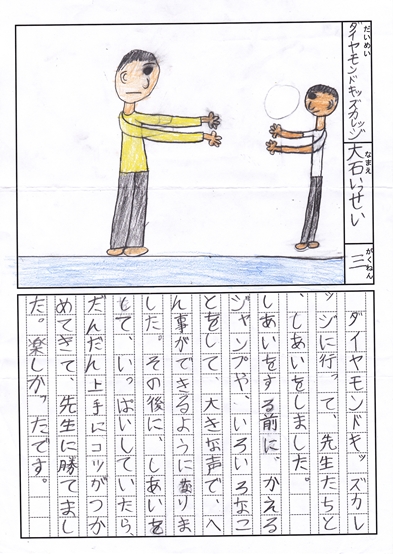 だいめい
ダイヤモンドキッズカレッジ
なまえ
大石いっせい
がくねん
三
ダイヤモンドキッズカレ
ッジに行って、先生たちと
、しあいをしました。
しあいをする前に、かえる
ジャンプや、いろいろなこ
とをして、大きな声で、へ
ん事ができるようになりま
した。その後に、しあいを
して、いっぱいしていたら、
だんだん上手にコツがつか
めてきて、先生に勝てまし
た。楽しかったです。